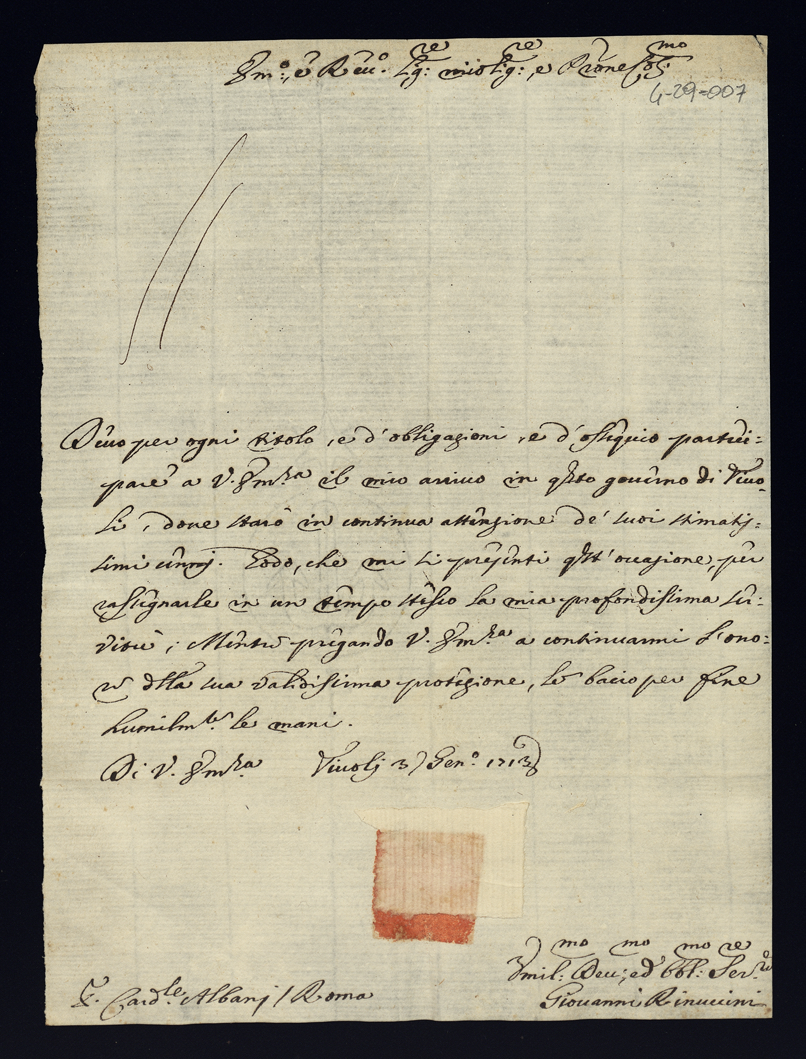 Em:º, e Reu:º Sig:re mio Sig:re, e Prone Col:mo
4-29-007
Deuo per ogni titolo, e d'obligazioni, e d'ossequio parteci=
pare a V. Em:za il mio arriuo in q:sto gouerno di Tiuo=
li, doue starò in continua attenzione de' suoi stimatis=
simi cenni. Godo, che mi si presenti q:st'occasione, per
rassegnarle in un tempo stesso la mia profondissima ser=
vitù; Mentre pregando V. Em:za a continuarmi l'ono=
re dlla sua validissima protezione, le bacio per fine
humilm:te le mani.
Di V. Em:za Tiuolj 3 Gen:º 1713
Vmil:mo Deu:mo, ed obl:mo Ser:re
S. Card:le Albanj / Roma
Giouanni Rinuccini